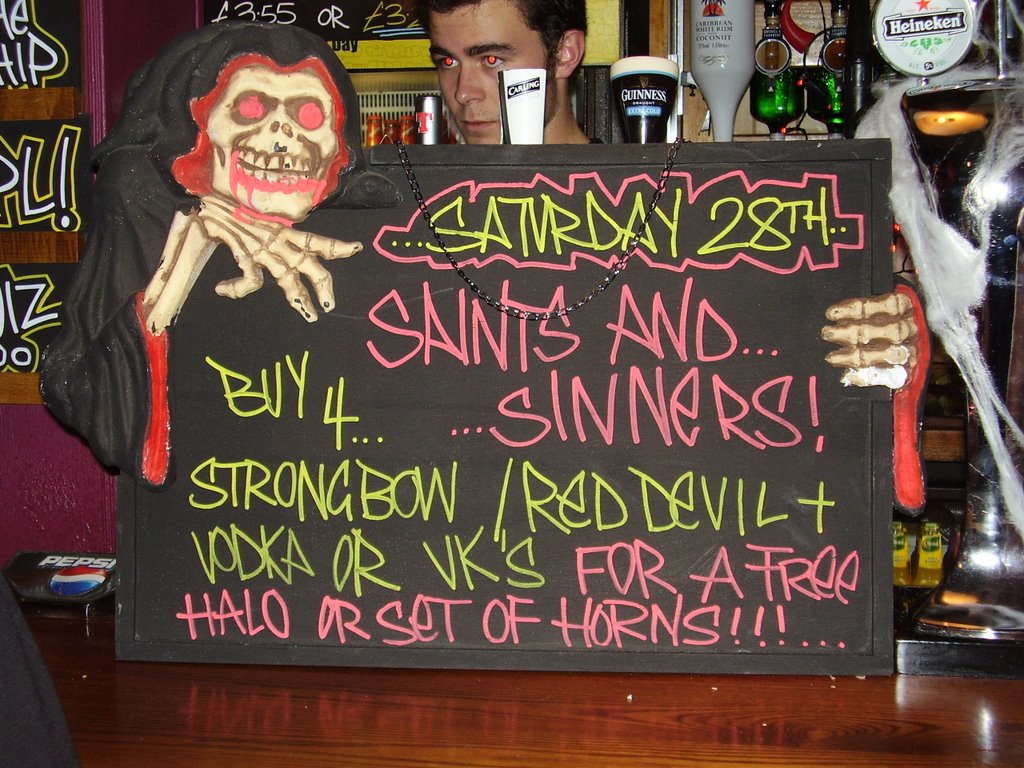 £3.55 OR £3
day
HE
HIP
PL!
IZ
OO
CARLING
T
GUINNESS
DRAUGHT
EXTRA COLD
CARIBBEAN
WHITE RUM
COCONUT
Heineken
PEPSI
...SATURDAY 28TH..
SAINTS AND...
...SINNERS!
BUY 4...
STRONGBOW / RED DEVIL +
VODKA OR VK'S FOR A FREE
HALO OR SET OF HORNS!!!....